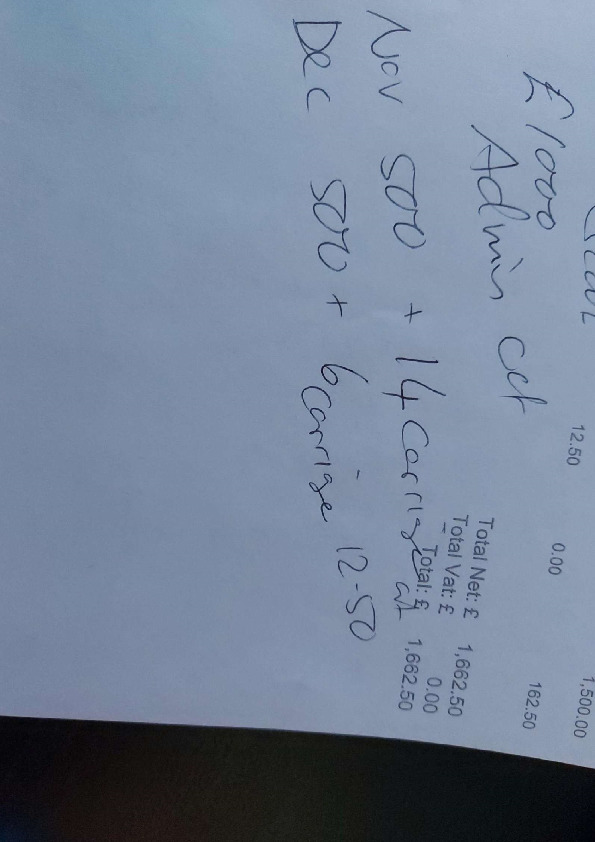 1,500.00
12.50 0.00 162.50
£1000
Admin cct
Total Net: £ 1,662.50
Total Vat: £ 0.00
Total: £ 1,662.50
Nov 500 + 14 Carriage at
Dec 500 + 6 Carriage 12-50